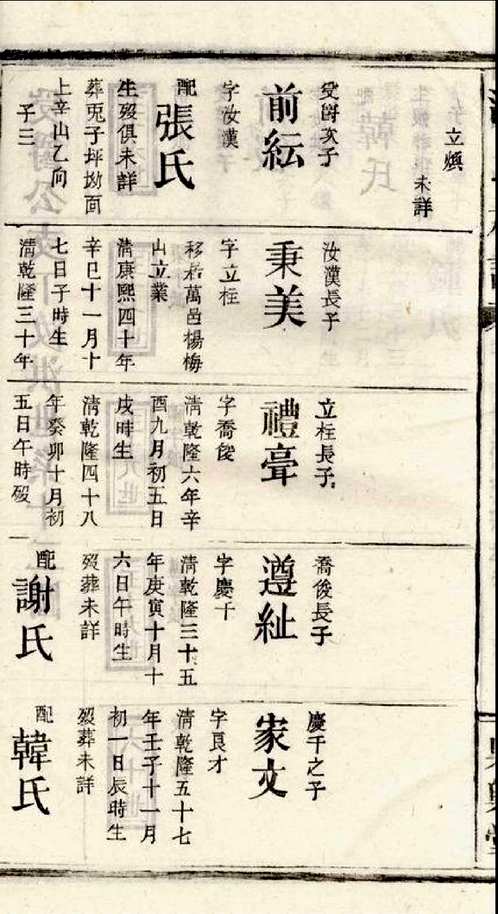 立嫡
未詳
受爵次子
前紜
字汝漢
配
張氏
生歿俱未詳
葬兎子坪坳面
上辛山乙向
子三
汝漢長子
秉美
字立柱
移居萬邑楊梅
山立業
清康熙四十年
辛巳十一月十
七日子時生
清乾隆三十年
立柱長子
禮亭
字喬俊
清乾隆六年辛
酉九月初五日
戌時生
清乾隆四十八
年癸卯十月初
五日午時歿
喬俊長子
遵祉
字慶千
清乾隆三十五
年庚寅十月十
六日午時生
歿葬未詳
配
謝氏
慶千之子
家文
字良才
清乾隆五十七
年壬子十一月
初一日辰時生
歿葬未詳
配
韓氏